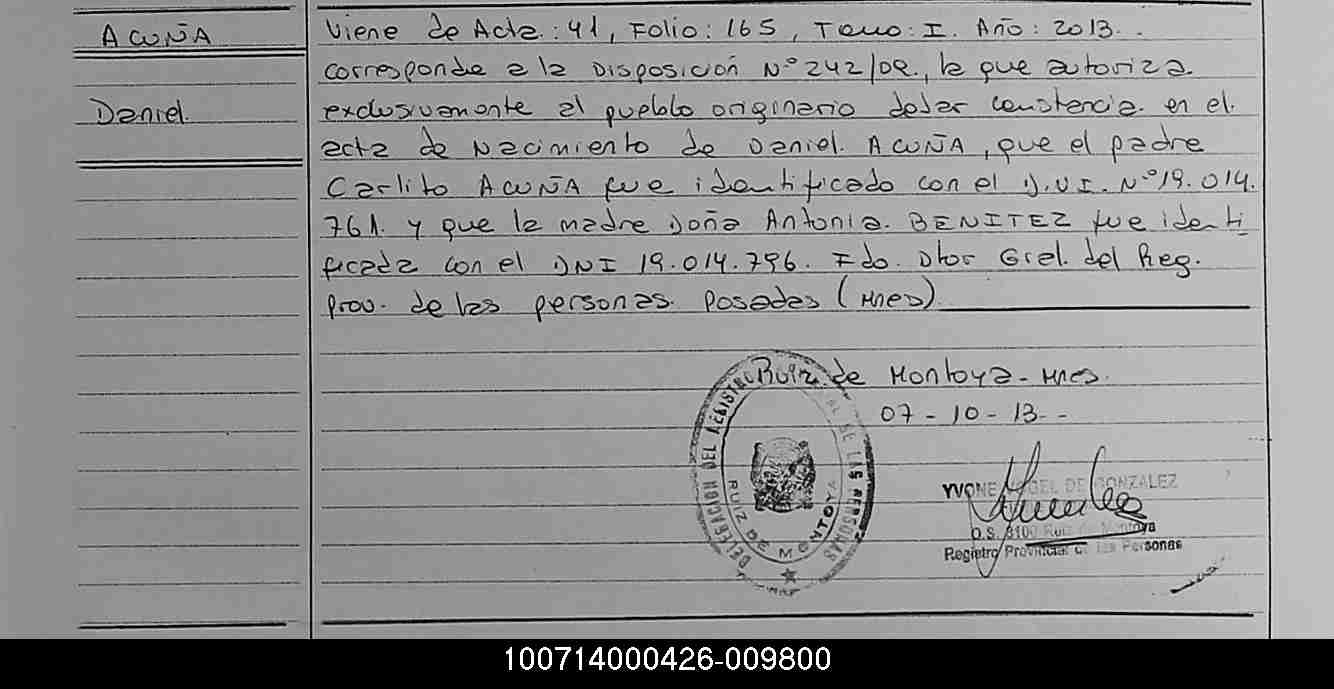 ACUÑA
Daniel.
Viene de Acta: 41, Folio: 165, Tomo: I. Año: 2013..
corresponde a la Disposición N° 242/02., la que autoriza.
exclusivamente al pueblo originario dejar constancia. en el.
acta de Nacimiento de Daniel. ACUÑA, que el padre
Carlito ACUÑA fue identificado con el D.N.I. N° 19.014.
761. y que la madre doña Antonia. BENITEZ fue identi
ficada con el DNI 19.014.796. Fdo. Dtor Gral. del Reg.
prov. de las personas. Posadas (Mnes)
Ruiz. de Montoya - Mnes.
07 - 10 - 13 - -
DELEGACION DEL REGISTRO DE LAS PERSONAS
RUIZ DE MONTOYA
YVONE DE GONZALEZ
O.S. Ruiz de Montoya
Registro Provincial de las Personas
100714000426-009800